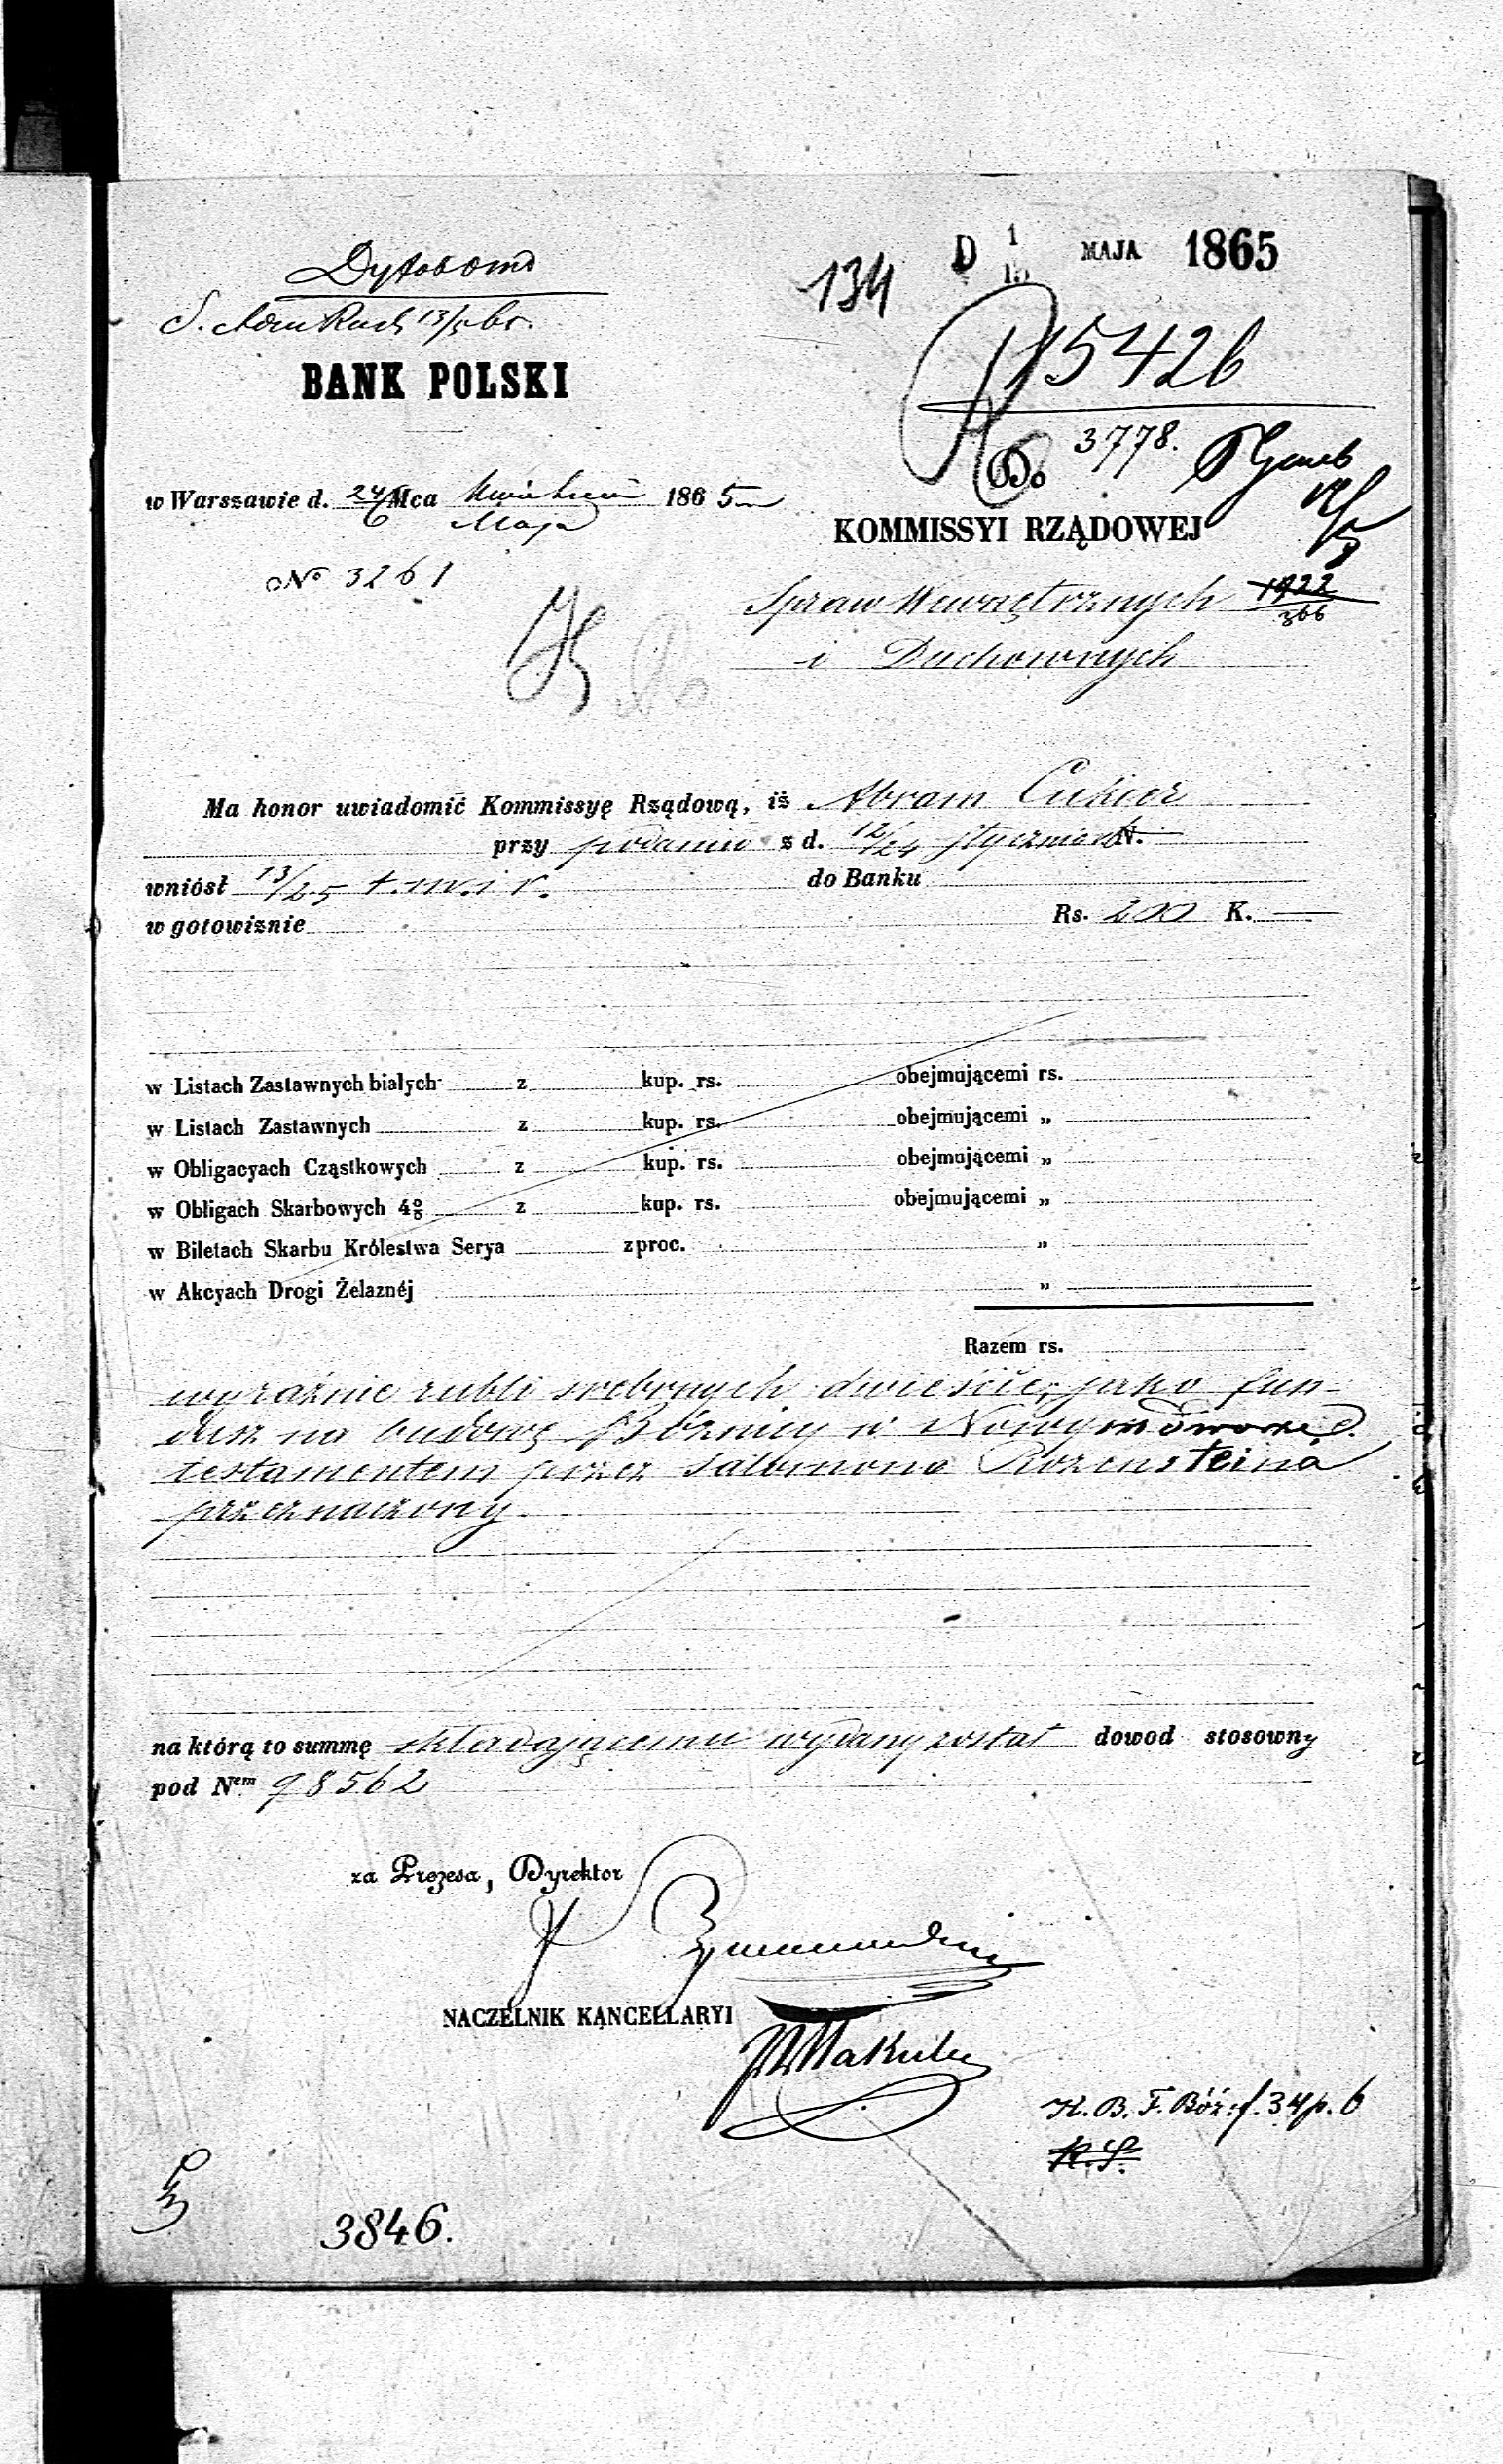 D 1 MAJA 1865
13
134
15426
BANK POLSKI
Do 3778.
w Warszawie d. 24/6 Mca Kwietnia 1865
Maja
KOMMISSYI RZĄDOWEJ
№ 3261
Spraw Wewnętrznych 1922
366
i Duchownych
Ma honor uwiadomić Kommissyę Rządową, iż Abram Cukier
przy podaniu z d. 12/24 stycznia N.
wniósł 13/25 t. m. i r. do Banku
w gotowiznie Rs. 200 K. —
w Listach Zastawnych białych z kup. rs. obejmującemi rs.
w Listach Zastawnych z kup. rs. obejmującemi „
w Obligacyach Cząstkowych z kup. rs. obejmującemi „
w Obligach Skarbowych 4% z kup. rs. obejmującemi „
w Biletach Skarbu Królestwa Serya z proc. „
w Akcyach Drogi Żelaznéj „
Razem rs.
wyraźnie rubli srebrnych dwieście, jako fun-
dusz na budowę Bóżnicy w Nowymdworze
testamentem przez Salomona Rozensteina
przeznaczony
na którą to summę składającemu wydany został dowod stosowny
pod Nem 98562
za Prezesa, Dyrektor
NACZELNIK KANCELLARYI
K. B. F. Bóż. f. 34 p. 6
3846.